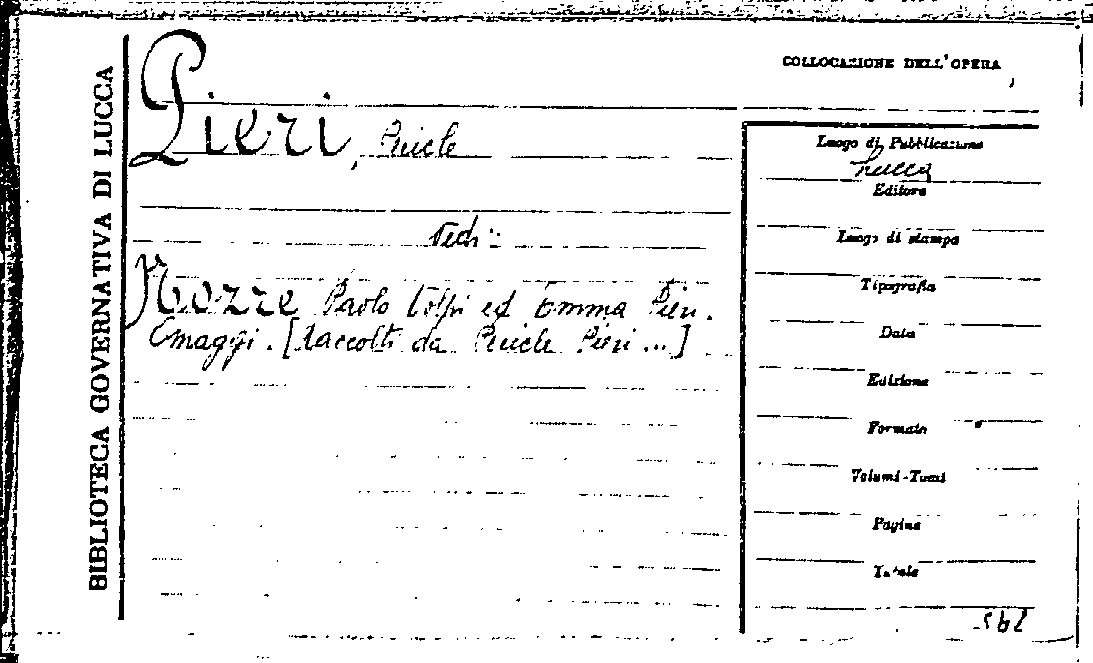 BIBLIOTECA GOVERNATIVA DI LUCCA
Pieri, Pericle
Vedi:
Nozze Paolo Volpi ed Emma Pieri.
Omaggi. [Raccolti da Pericle Pieri ...]
COLLOCAZIONE DELL'OPERA
Luogo di Pubblicazione
Lucca
Editore
Luogo di stampa
Tipografia
Data
Edizione
Formato
Volumi-Tomi
Pagine
Tavole